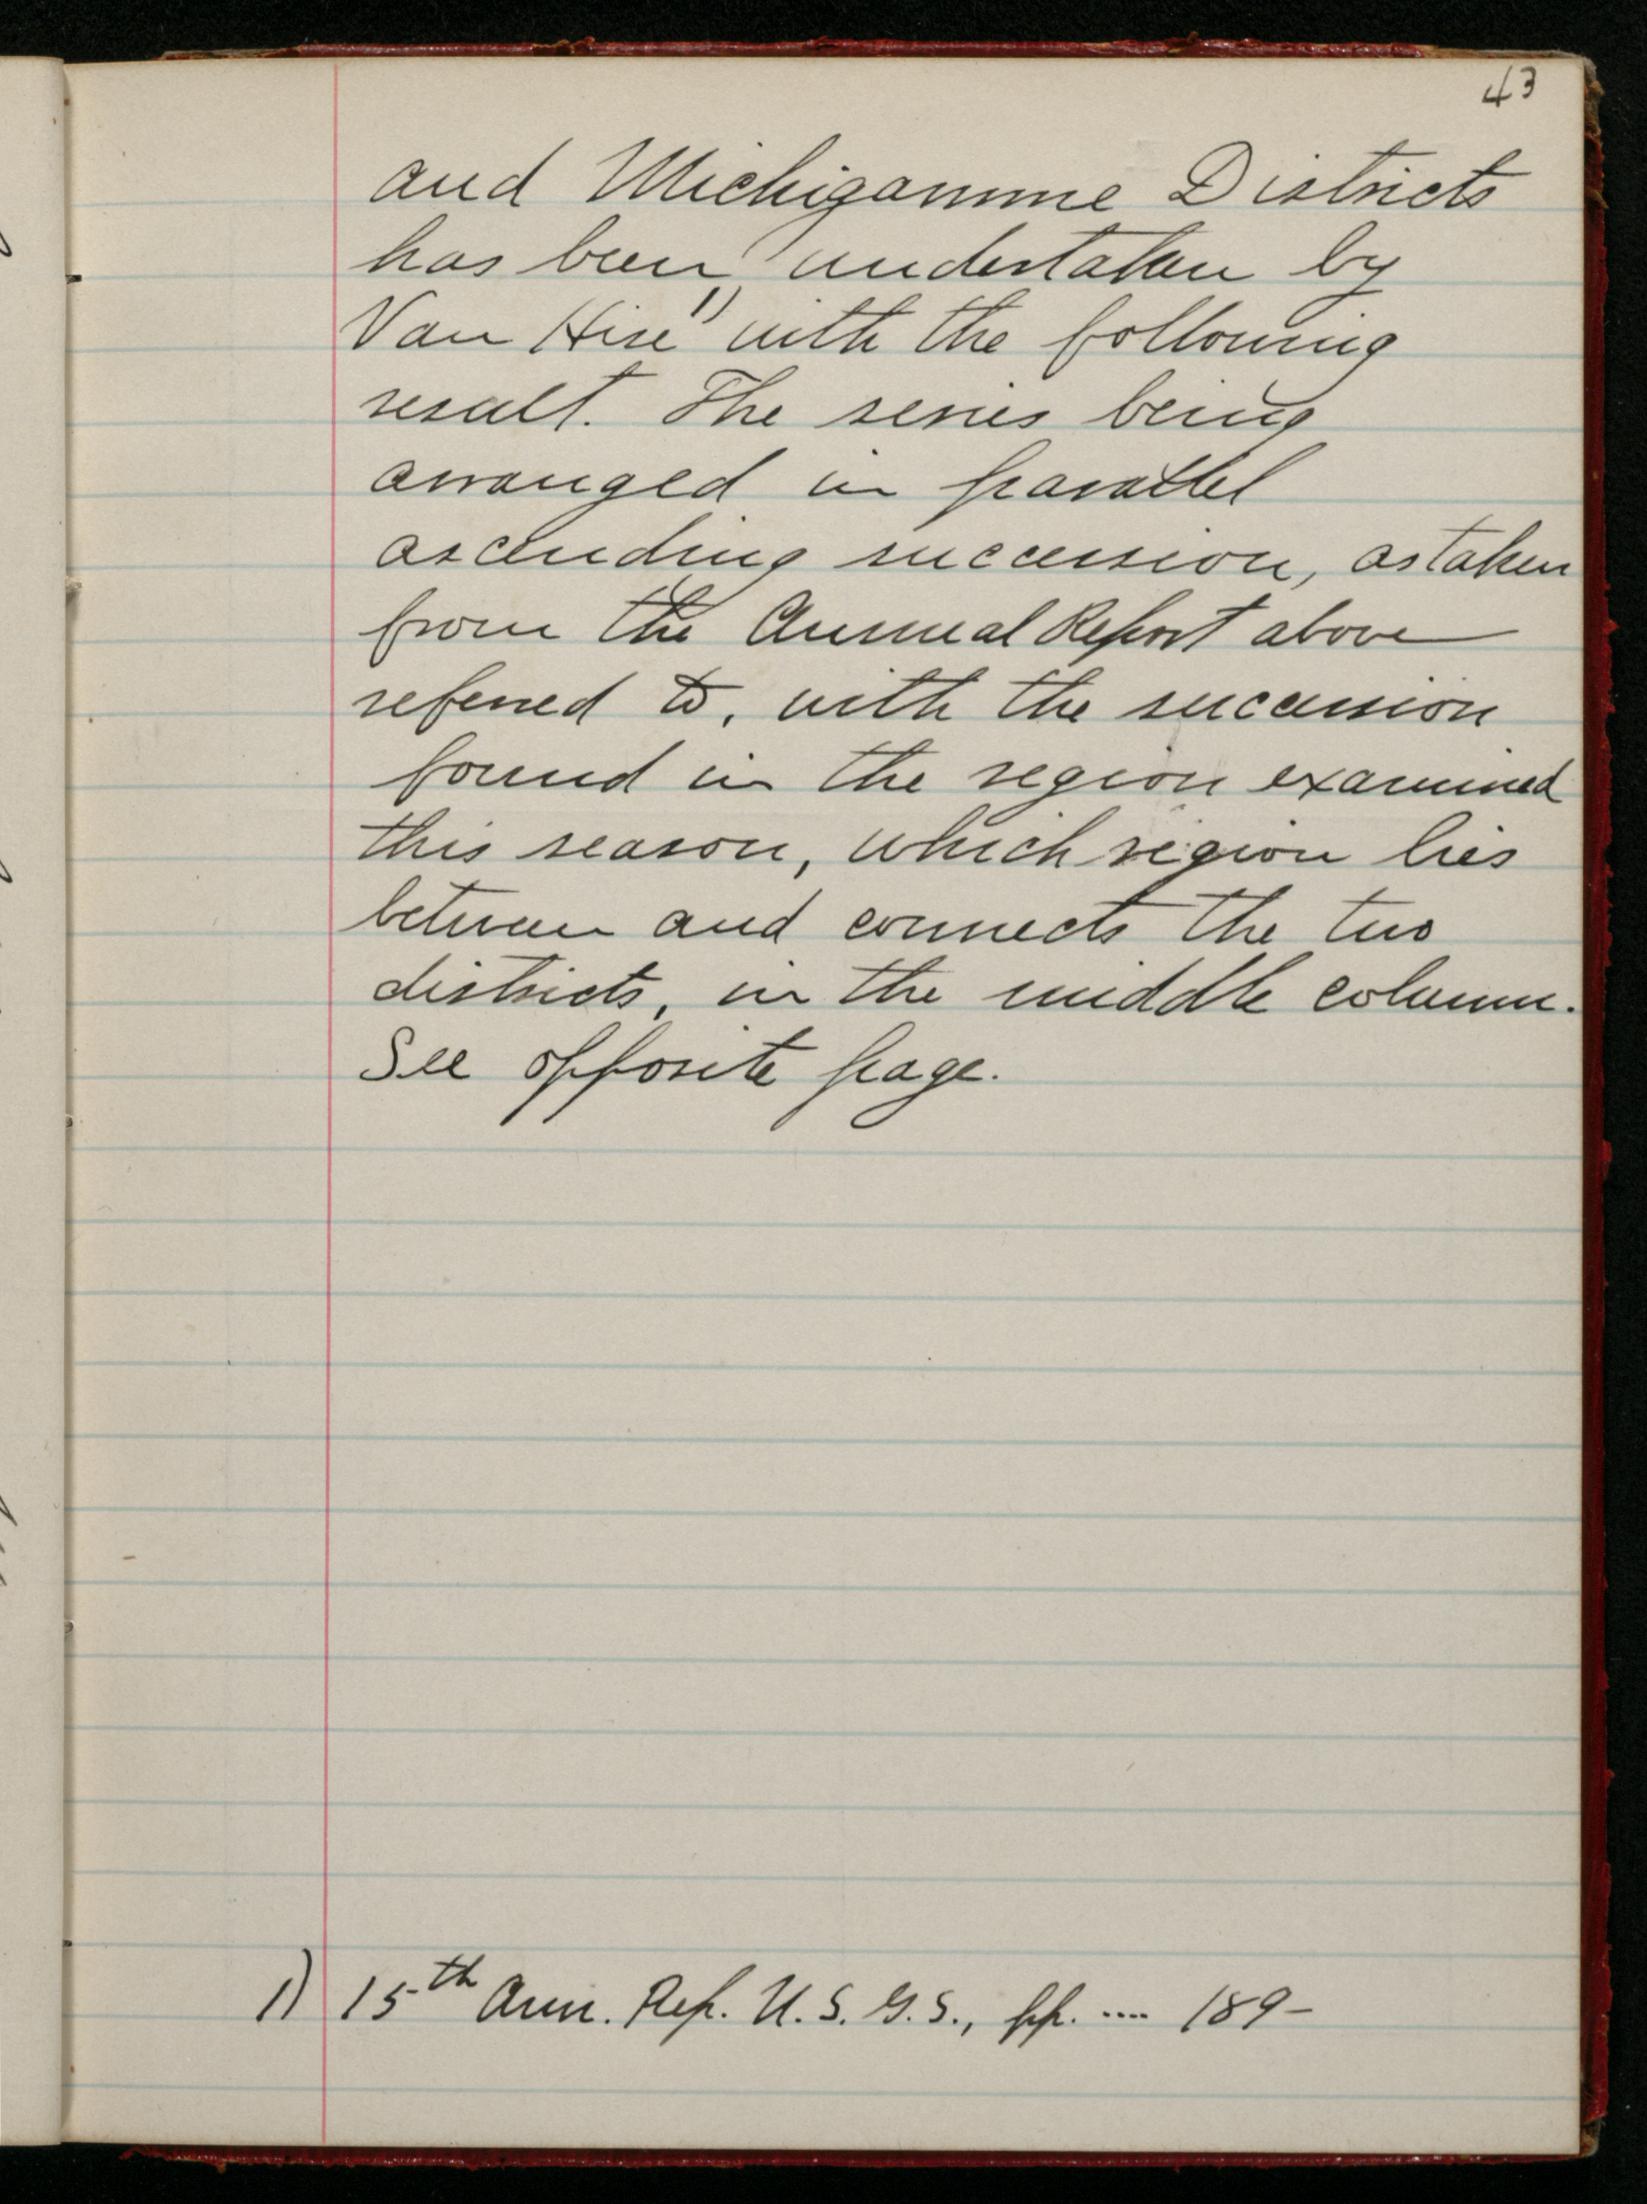 43
and Michigamme Districts
has been undertaken by
Van Hise 1) with the following
result. The series being
arranged in parallel
ascending succession, as taken
from the Annual Report above
referred to, with the succession
found in the region examined
this season, which region lies
between and connects the two
districts, in the middle column.
See opposite page.
1) 15th Ann. Rep. U. S. G. S., pp. .... 189-